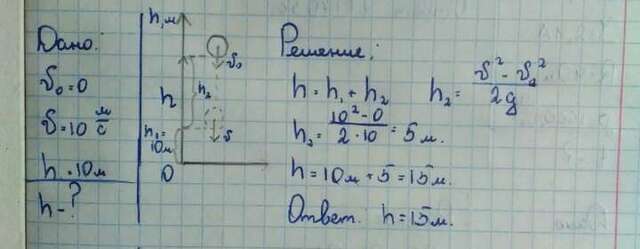 Дано:
υ₀=0
υ=10 м/с
h=10м
h-?
h,м
υ₀
h
h₂
h₁=
10м
υ
0
Решение:
h=h₁+h₂ h₂=(υ²-υ₀²)/2g
h₂=(10²-0)/(2·10)=5м.
h=10м+5=15м.
Ответ: h=15м.